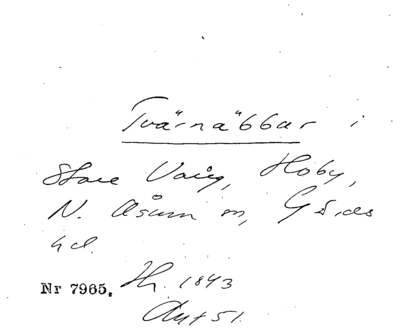 Tvärnäbbar i
Stora Väng, Hoby,
N. Åsum sn, Gärds
hd.
Nr 7965. Th. 1843
Ant 51.